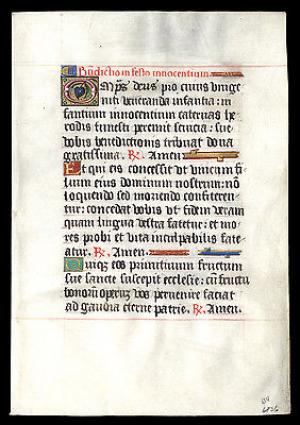 Benedictio in festo innocentium
Omps deus pro cuius unige
niti veneranda infantia: in
fantium innocentium catervas he
rodis funesti peremit sevicia: sue
vobis benedictionis tribuat dona
gratissima. R. Amen
Et qui eis concessit ut unicum fi
lium eius dominum nostrum: nō
loquendo sed moriendo confiteren
tur: concedat vobis ut fidem veram
quam lingua vestra fatetur: et mo
res probi et vita inculpabilis fate
atur. R. Amen.
Quique eos primitivum fructum
sue sancte suscepit ecclesie: cū fructu
bonorū operum vos pervenire faciat
ad gaudia eterne patrie. R. Amen.